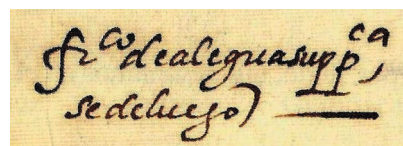 fr^co de alegua supp^ca,
se de luego)